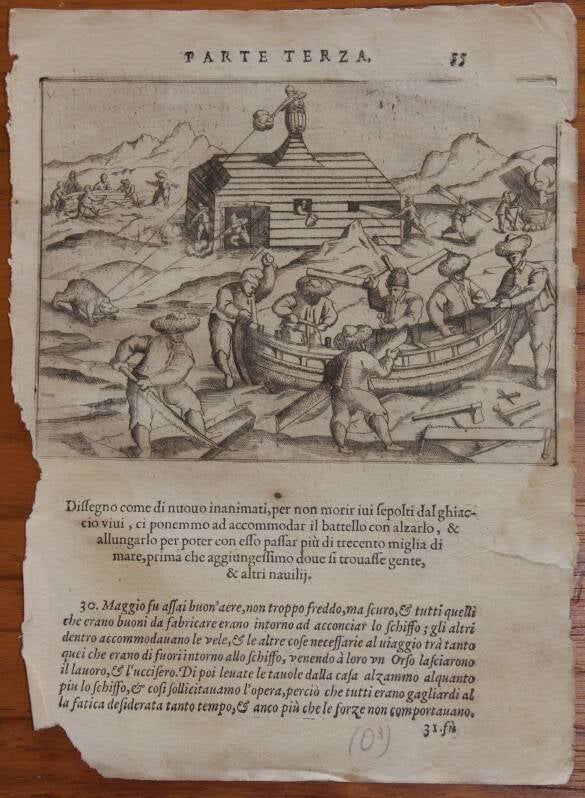 PARTE TERZA.
33
Diſſegno come di nuouo inanimati, per non morir iui ſepolti dal ghiac-
cio viui, ci ponemmo ad accommodar il battello con alzarlo, &
allungarlo per poter con eſſo paſſar più di trecento miglia di
mare, prima che aggiungeſſimo doue ſi trouaſſe gente,
& altri nauilij.
30. Maggio fu aſſai buon'aere, non troppo freddo, ma ſcuro, & tutti quelli
che erano buoni da fabricare erano intorno ad acconciar lo ſchiffo; gli altri
dentro accommodauano le vele, & le altre coſe neceſſarie al uiaggio trà tanto
quei che erano di fuori intorno allo ſchiffo, venendo à loro vn Orſo laſciarono
il lauoro, & l'ucciſero. Di poi leuate le tauole dalla caſa alzammo alquanto
piu lo ſchiffo, & coſi ſollicitauamo l'opera, perciò che tutti erano gagliardi al
la fatica deſiderata tanto tempo, & anco più che le forze non comportauano.
31. fù
(03)